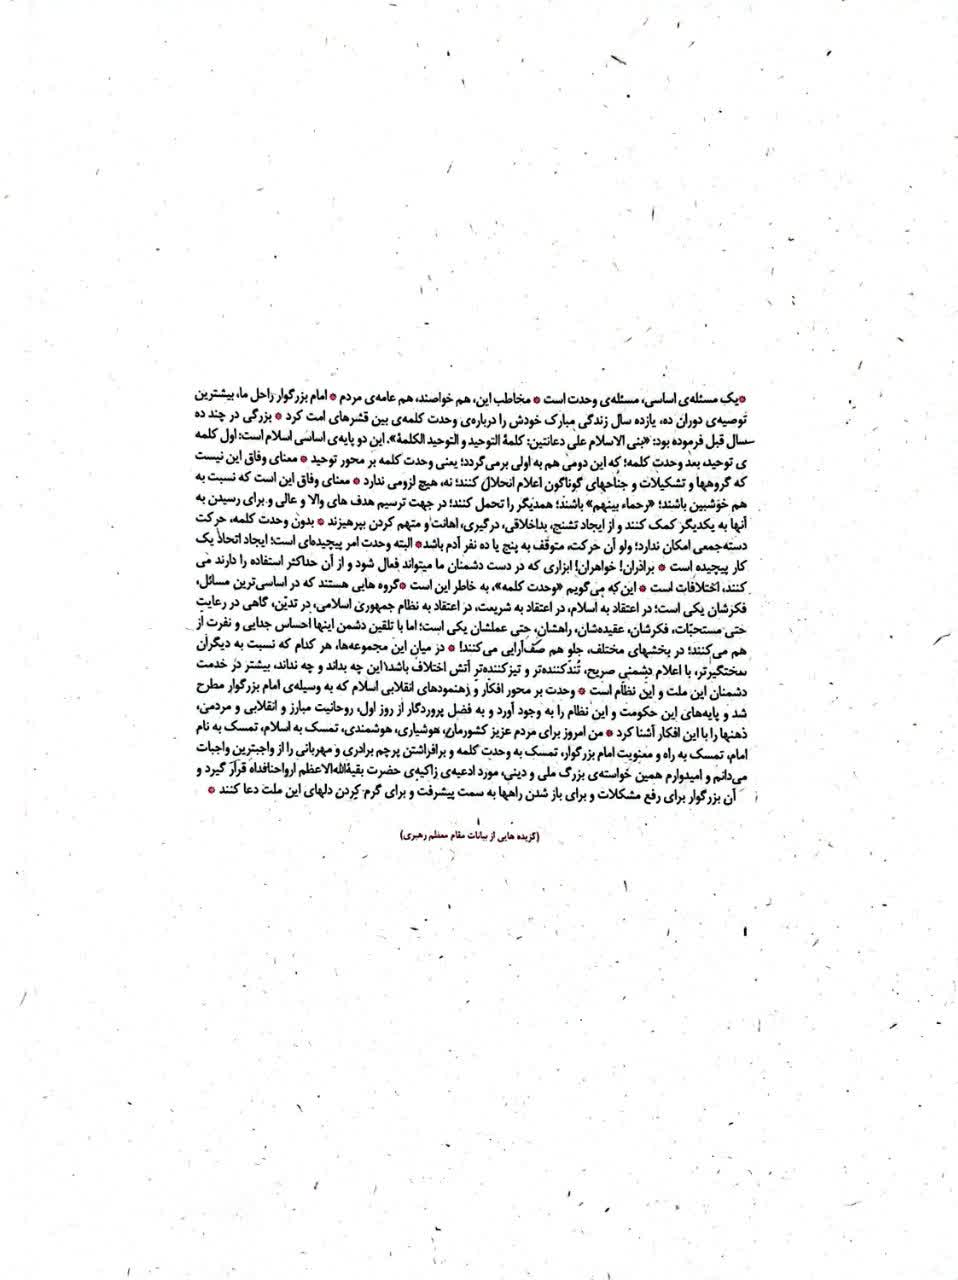 *یک مسئله‌ی اساسی، مسئله‌ی وحدت است * مخاطب این، هم خواصند، هم عامه‌ی مردم * امام بزرگوار راحل ما، بیشترین
توصیه‌ی دوران ده، یازده سال زندگی مبارک خودش را درباره‌ی وحدت کلمه‌ی بین قشرهای امت کرد * بزرگی در چند ده
سال قبل فرموده بود: «بنی الاسلام علی دعامتین: کلمة التوحید و التوحید الکلمة». این دو پایه‌ی اساسی اسلام است: اول کلمه
ی توحید، بعد وحدت کلمه؛ که این دومی هم به اولی برمی‌گردد؛ یعنی وحدت کلمه بر محور توحید * معنای وفاق این نیست
که گروهها و تشکیلات و جناحهای گوناگون اعلام انحلال کنند؛ نه، هیچ لزومی ندارد * معنای وفاق این است که نسبت به
هم خوشبین باشند؛ «رحماء بینهم» باشند؛ همدیگر را تحمل کنند؛ در جهت ترسیم هدف های والا و عالی و برای رسیدن به
آنها به یکدیگر کمک کنند و از ایجاد تشنج، بداخلاقی، درگیری، اهانت و متهم کردن بپرهیزند * بدون وحدت کلمه، حرکت
دسته‌جمعی امکان ندارد؛ ولو آن حرکت، متوقف به پنج یا ده نفر آدم باشد * البته وحدت امر پیچیده‌ای است؛ ایجاد اتحاد یک
کار پیچیده است * برادران! خواهران! ابزاری که در دست دشمنان ما میتواند فعال شود و از آن حداکثر استفاده را دارند می
کنند، اختلافات است * این‌که می‌گویم «وحدت کلمه»، به خاطر این است *گروه هایی هستند که در اساسی‌ترین مسائل،
فکرشان یکی است؛ در اعتقاد به اسلام، در اعتقاد به شریعت، در اعتقاد به نظام جمهوری اسلامی، در تدیّن، گاهی در رعایت
حتی مستحبّات، فکرشان، عقیده‌شان، راهشان، حتی عملشان یکی است؛ اما با تلقین دشمن اینها احساس جدایی و نفرت از
هم می‌کنند؛ در بخشهای مختلف، جلو هم صف‌آرایی می‌کنند! * در میان این مجموعه‌ها، هر کدام که نسبت به دیگران
سختگیرتر، با اعلام دشمنی صریح، تُندکننده‌تر و تیزکننده‌تر آتش اختلاف باشد؛ این چه بداند و چه نداند، بیشتر در خدمت
دشمنان این ملت و این نظام است * وحدت بر محور افکار و رهنمودهای انقلابی اسلام که به وسیله‌ی امام بزرگوار مطرح
شد و پایه‌های این حکومت و این نظام را به وجود آورد و به فضل پروردگار از روز اول، روحانیت مبارز و انقلابی و مردمی،
ذهنها را با این افکار آشنا کرد * من امروز برای مردم عزیز کشورمان، هوشیاری، هوشمندی، تمسک به اسلام، تمسک به نام
امام، تمسک به راه و معنویت امام بزرگوار، تمسک به وحدت کلمه و برافراشتن پرچم برادری و مهربانی را از واجبترین واجبات
می‌دانم و امیدوارم همین خواسته‌ی بزرگ ملی و دینی، مورد ادعیه‌ی زاکیه‌ی حضرت بقیةالله‌الاعظم ارواحنافداه قرار گیرد و
آن بزرگوار برای رفع مشکلات و برای باز شدن راهها به سمت پیشرفت و برای گرم کردن دلهای این ملت دعا کنند *
(گزیده هایی از بیانات مقام معظم رهبری)